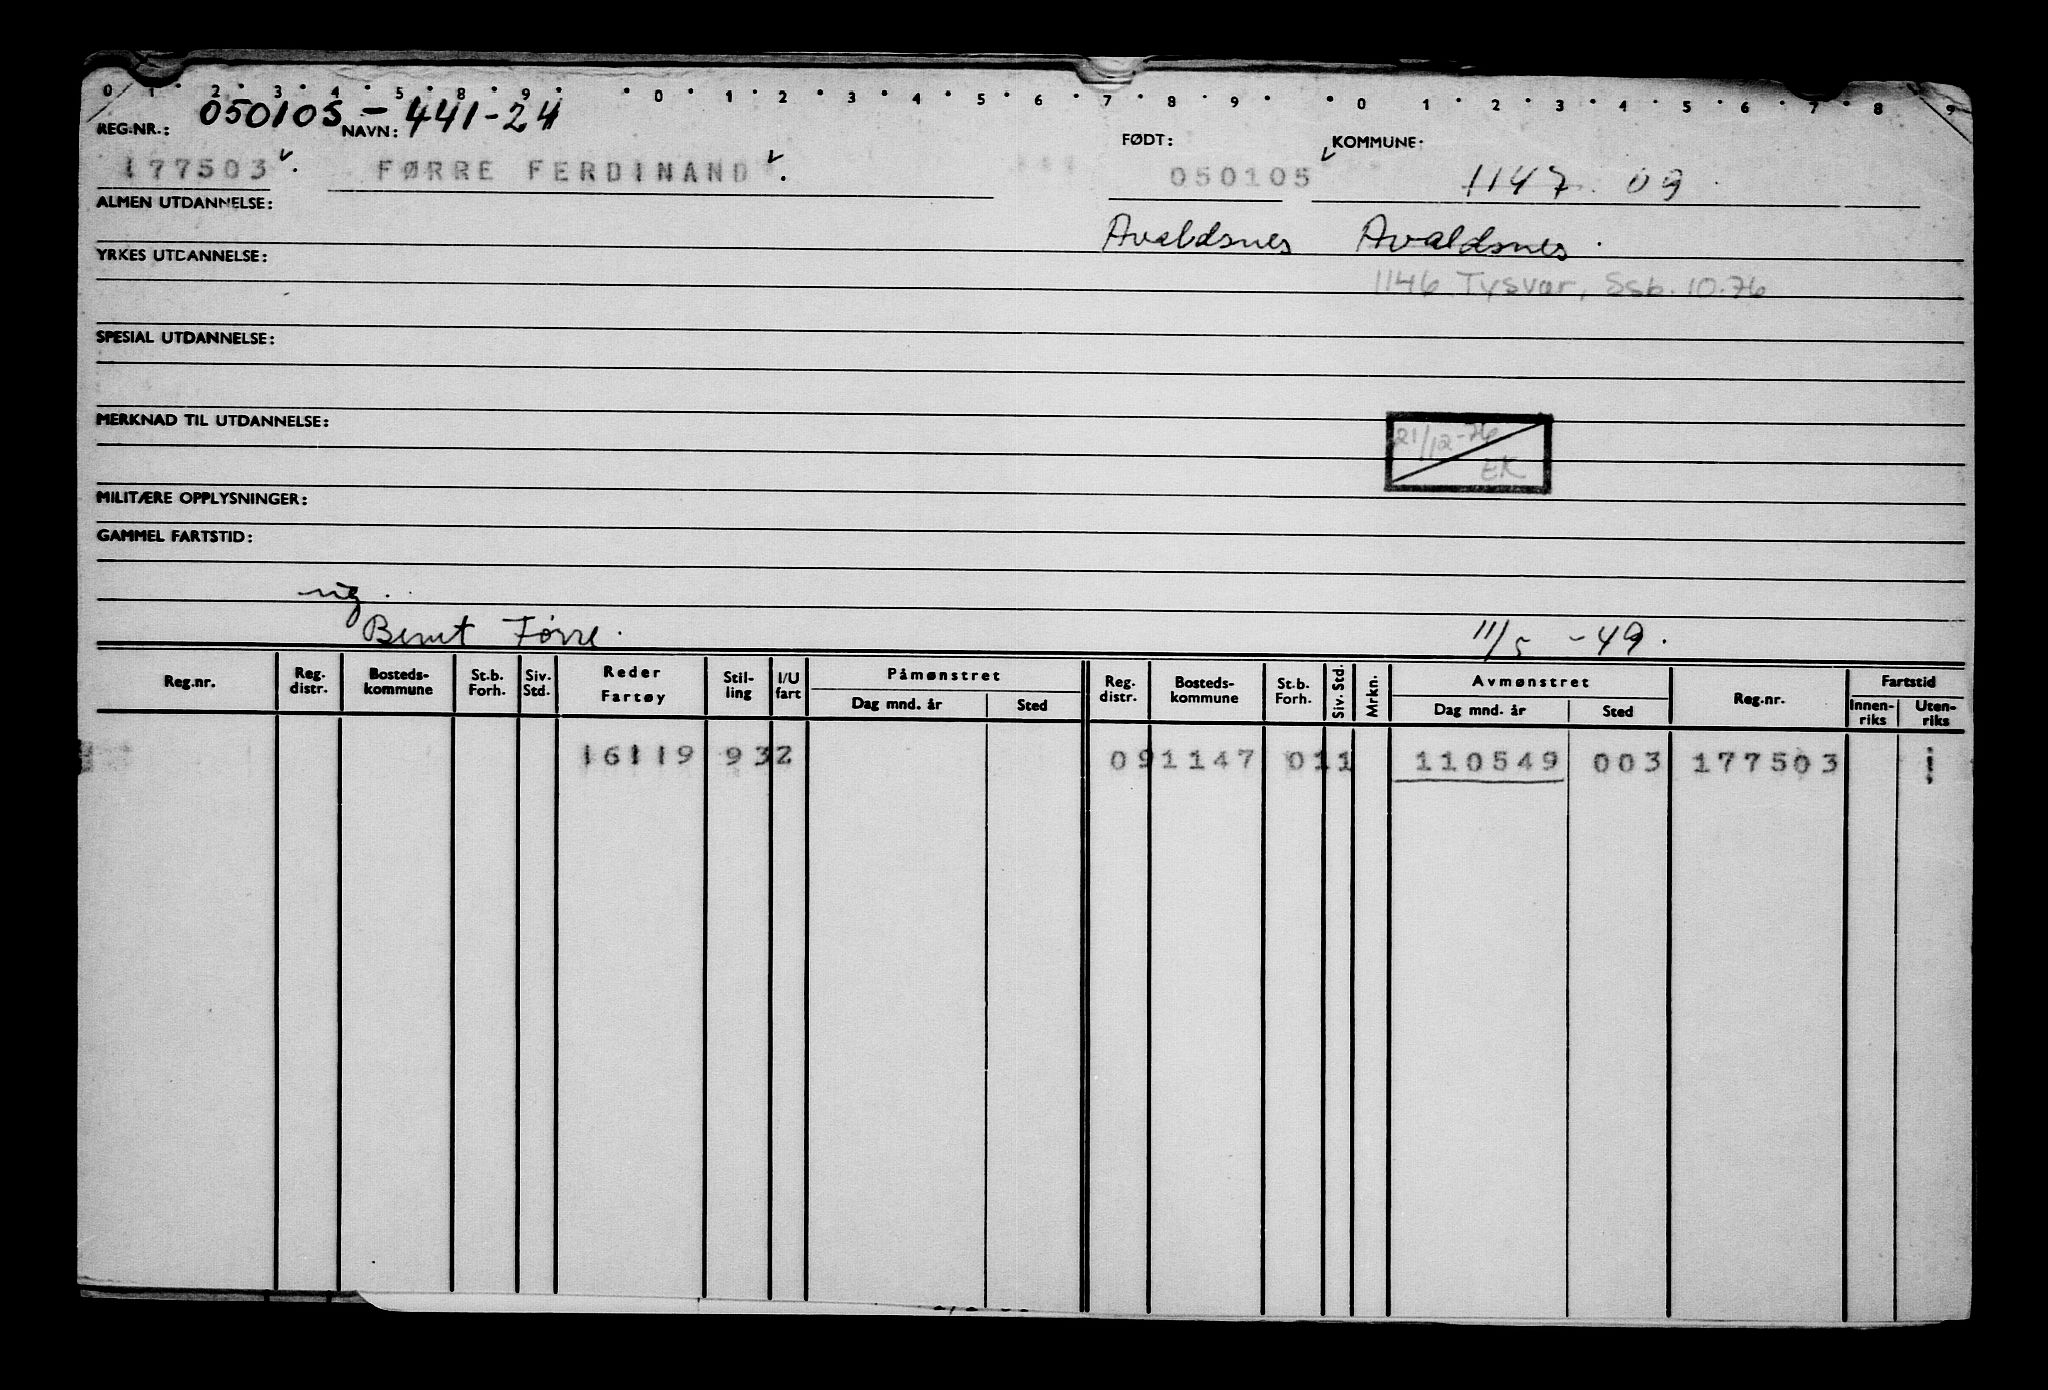 0 1 2 3 4 5 8 9 0 1 2 3 4 5 6 7 8 9 0 1 2 3 4 5 6 7 8 9
050105-441-24
REG.NR.: NAVN: FØDT: KOMMUNE:
177503 FØRRE FERDINAND 050105 1147 09
ALMEN UTDANNELSE:
Avaldsnes Avaldsnes
YRKES UTDANNELSE:
1146 Tysvær, Ssb. 10.76
SPESIAL UTDANNELSE:
MERKNAD TIL UTDANNELSE:
21/12-76
EK
MILITÆRE OPPLYSNINGER:
GAMMEL FARTSTID:
Bernt Førre. 11/5 -49.
Reg.nr. Reg. distr. Bosteds-kommune St.b. Forh. Siv. Std. Reder Fartøy Stil-ling I/U fart Påmønstret Dag mnd. år Sted Reg. distr. Bosteds-kommune St.b. Forh. Siv. Std. Mrkn. Avmønstret Dag mnd. år Sted Reg.nr. Fartstid Innen-riks Uten-riks
16119 932 091147 011 110549 003 177503